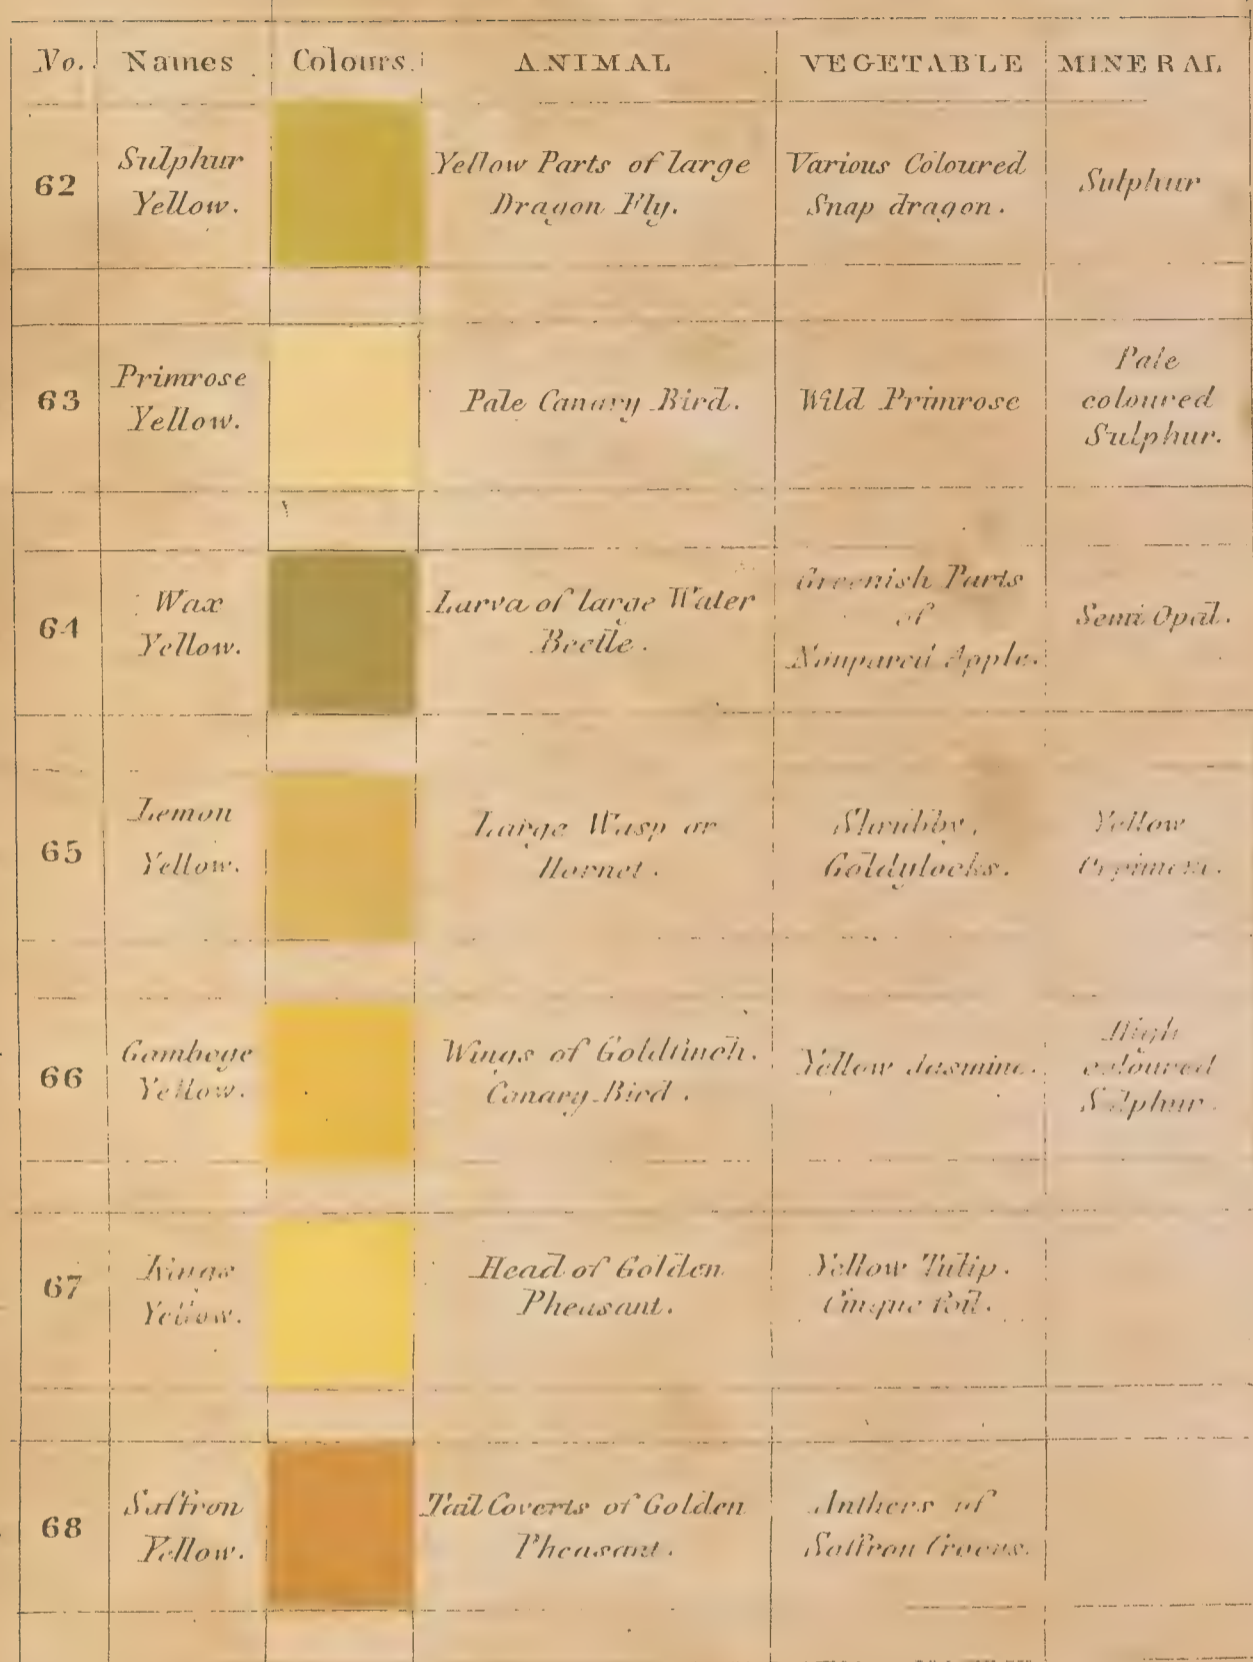 No. Names Colours. ANIMAL VEGETABLE MINERAL
62
Sulphur
Yellow.
Yellow Parts of large
Dragon Fly.
Various Coloured
Snap dragon.
Sulphur
63
Primrose
Yellow.
Pale Canary Bird.
Wild Primrose
Pale
coloured
Sulphur.
64
Wax
Yellow.
Larva of large Water
Beetle.
Greenish Parts
of
Nonpareil Apple.
Semi Opal.
65
Lemon
Yellow.
Large Wasp or
Hornet.
Shrubby
Goldylocks.
Yellow
Orpiment.
66
Gamboge
Yellow.
Wings of Goldfinch.
Canary Bird.
Yellow Jasmine.
High
coloured
Sulphur.
67
Kings
Yellow.
Head of Golden
Pheasant.
Yellow Tulip.
Cinque foil.
68
Saffron
Yellow.
Tail Coverts of Golden
Pheasant.
Anthers of
Saffron Crocus.